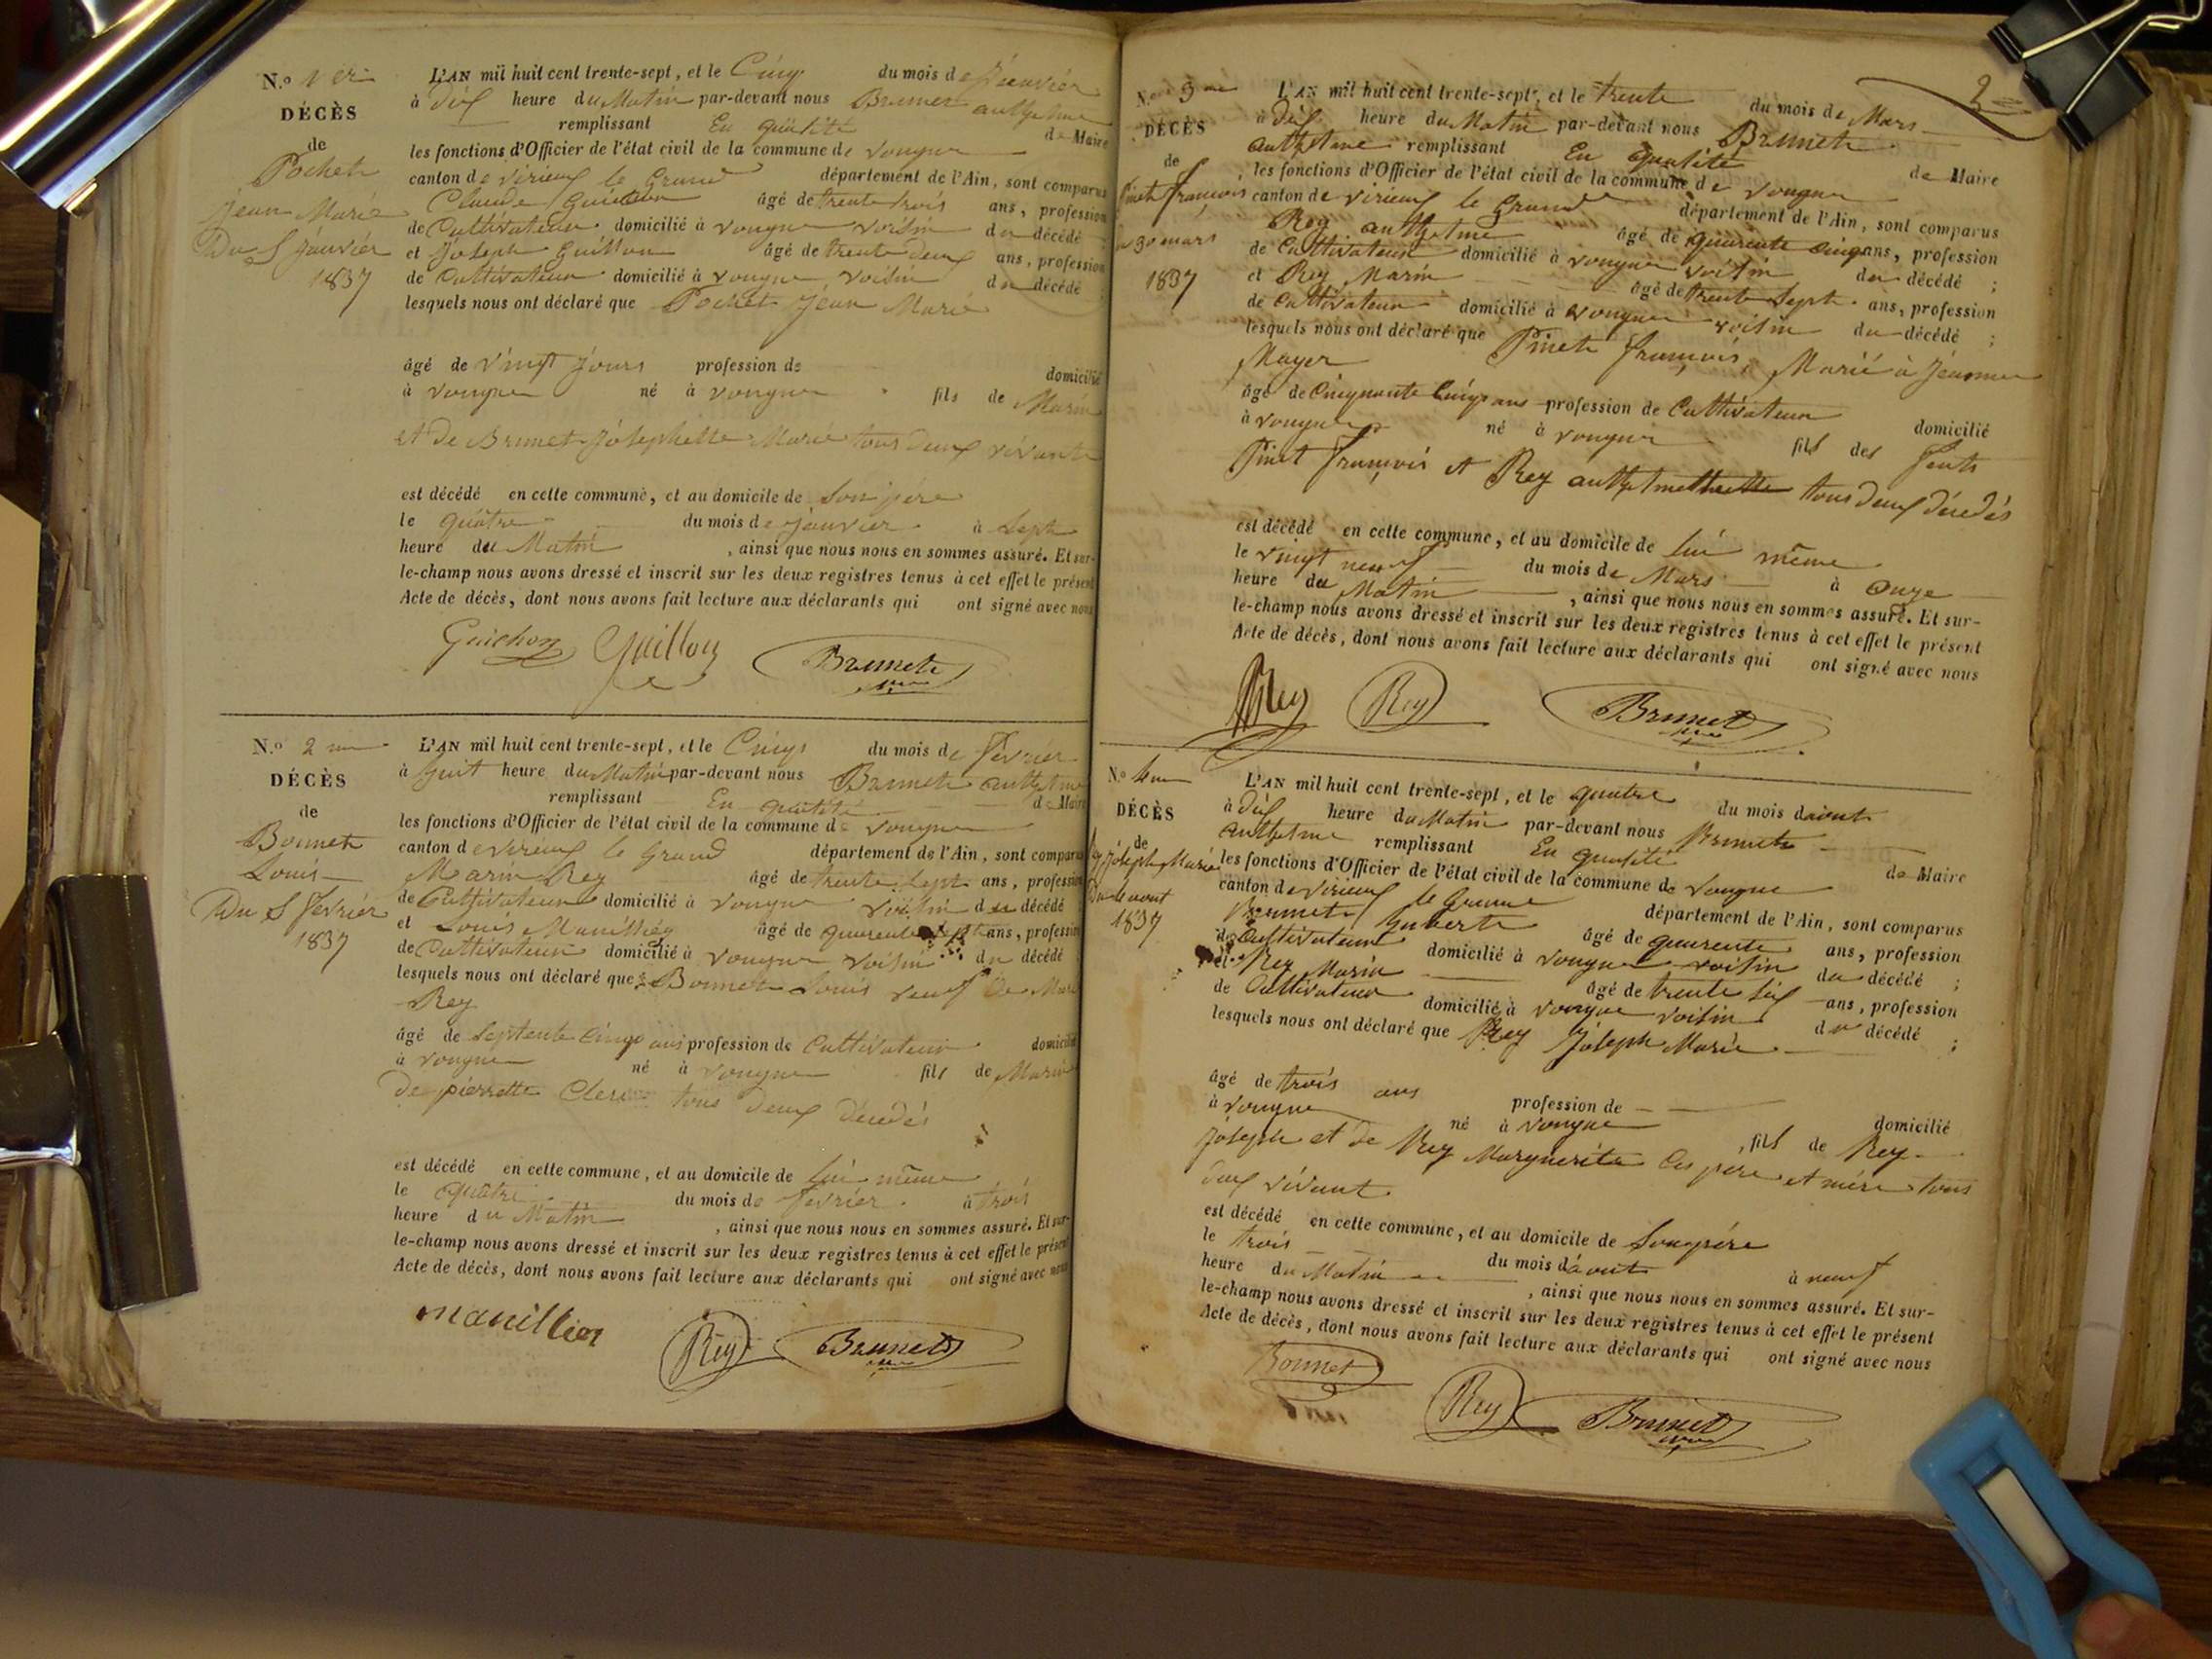 N.o 1 er
DÉCÈS
de
Pochet
Jean Marie
Du 5 Janvier
1837
L'AN mil huit cent trente-sept, et le Cinq du mois de Janvier
à dix heure du Matin par-devant nous Brunet anthelme
remplissant En qualité de Maire
les fonctions d'Officier de l'état civil de la commune de vongne
canton de virieux le Grand département de l'Ain, sont comparus
Claude Guichon âgé de trente trois ans, profession
de Cultivateur domicilié à vongne voisin du décédé ;
et Joseph Guillon âgé de trente deux ans, profession
de Cultivateur domicilié à vongne voisin du décédé ;
lesquels nous ont déclaré que Pochet Jean Marie
âgé de vingt jours profession de domicilié
à vongne né à vongne fils de Marin
et de Brunet Josephette Marie tous deux vivants
est décédé en cette commune, et au domicile de Son père
le quatre du mois de janvier à Sept
heure du Matin , ainsi que nous nous en sommes assuré. Et sur-
le-champ nous avons dressé et inscrit sur les deux registres tenus à cet effet le présent
Acte de décès, dont nous avons fait lecture aux déclarants qui ont signé avec nous
Guichon Guillon Brunet
N.o 2 me
DÉCÈS
de
Bonnet
Louis
Du 5 fevrier
1837
L'AN mil huit cent trente-sept, et le Cinq du mois de fevrier
à huit heure du Matin par-devant nous Brunet anthelme
remplissant En qualité de Maire
les fonctions d'Officier de l'état civil de la commune de vongne
canton de virieux le Grand département de l'Ain, sont comparus
Marin Rey âgé de trente Sept ans, profession
de Cultivateur domicilié à vongne voisin du décédé ;
et Louis âgé de quarente ans, profession
de Cultivateur domicilié à vongne voisin du décédé
lesquels nous ont déclaré que Bonnet Louis veuf de Marie
Rey
âgé de Septente Cinq ans profession de Cultivateur domicilié
à vongne né à vongne fils de
de pierrette Clerc tous deux décedés
est décédé en cette commune, et au domicile de lui même
le quatre du mois de fevrier à trois
heure du Matin , ainsi que nous nous en sommes assuré. Et sur-
le-champ nous avons dressé et inscrit sur les deux registres tenus à cet effet le présent
Acte de décès, dont nous avons fait lecture aux déclarants qui ont signé avec nous
manillier Rey Brunet
N.o 3 me
DÉCÈS
de
Pinet françois
du 30 mars
1837
L'AN mil huit cent trente-sept, et le trente du mois de Mars
à dix heure du Matin par-devant nous Brunet
anthelme remplissant En qualité de Maire
les fonctions d'Officier de l'état civil de la commune de vongne
canton de virieux le Grand département de l'Ain, sont comparus
Rey anthelme âgé de quarente cinq ans, profession
de Cultivateur domicilié à vongne voisin du décédé ;
et Rey Marin âgé de trente Sept ans, profession
de Cultivateur domicilié à vongne voisin du décédé ;
lesquels nous ont déclaré que Pinet françois, Marié à Jeanne
Mayer
âgé de Cinquante Cinq ans profession de Cultivateur domicilié
à vongne né à vongne fils des
Pinet françois et Rey tous deux décedés
est décédé en cette commune, et au domicile de lui même
le vingt neuf du mois de Mars à onze
heure du Matin , ainsi que nous nous en sommes assuré. Et sur-
le-champ nous avons dressé et inscrit sur les deux registres tenus à cet effet le présent
Acte de décès, dont nous avons fait lecture aux déclarants qui ont signé avec nous
Rey Rey Brunet
N.o 4 me
DÉCÈS
de
Rey Joseph Marie
Du 4 aout
1837
L'AN mil huit cent trente-sept, et le quatre du mois daout
à dix heure du Matin par-devant nous Brunet
anthelme remplissant En qualité de Maire
les fonctions d'Officier de l'état civil de la commune de vongne
canton de virieux le Grand département de l'Ain, sont comparus
âgé de quarente ans, profession
de Cultivateur domicilié à vongne voisin du décédé ;
et Rey Marin âgé de trente Six ans, profession
de Cultivateur domicilié à vongne voisin du décédé ;
lesquels nous ont déclaré que Rey Joseph Marie
âgé de trois ans profession de domicilié
à vongne né à vongne , fils de Rey
Joseph et de Rey Marguerite Ces pere et mére tous
deux vivant
est décédé en cette commune, et au domicile de Son père
le trois du mois d'aout à neuf
heure du Matin , ainsi que nous nous en sommes assuré. Et sur-
le-champ nous avons dressé et inscrit sur les deux registres tenus à cet effet le présent
Acte de décès, dont nous avons fait lecture aux déclarants qui ont signé avec nous
Bonnet Rey Brunet